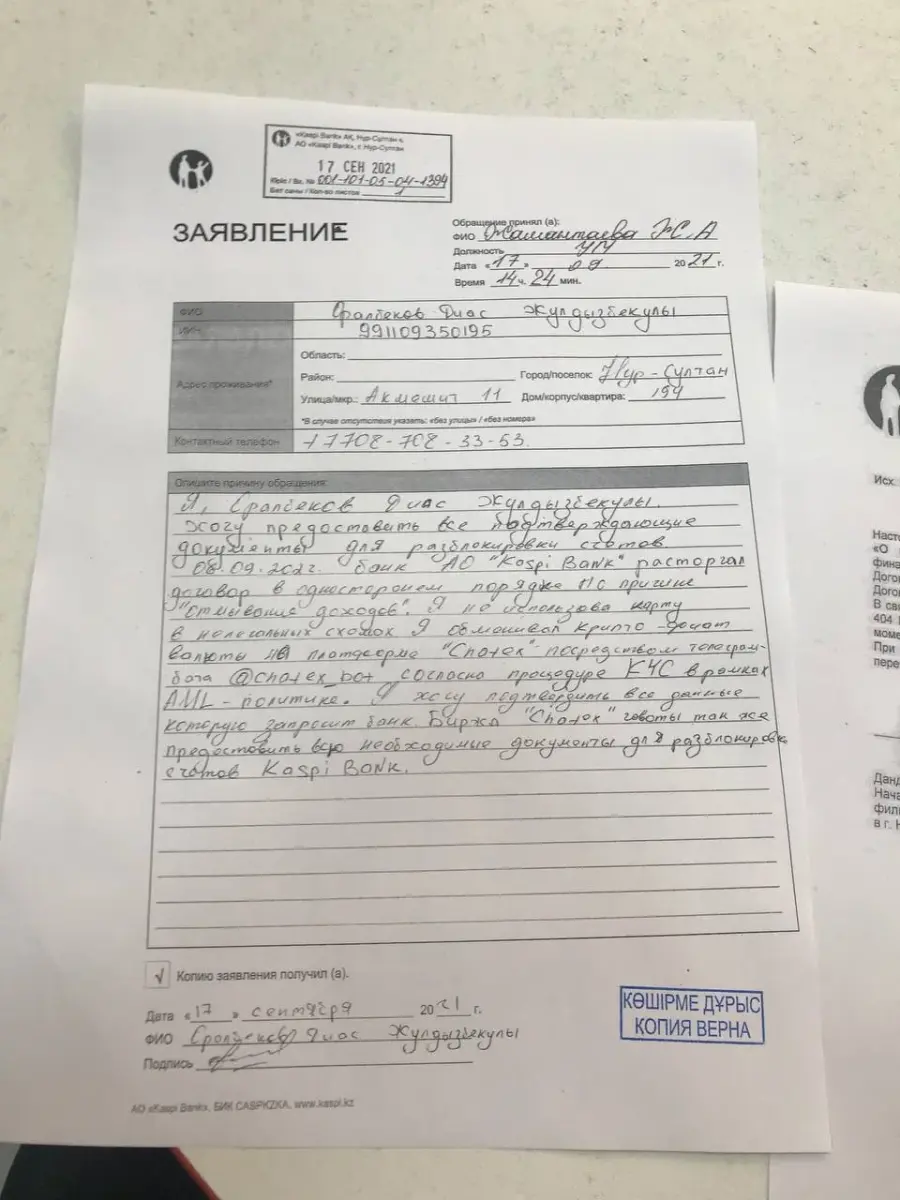 «Kaspi Bank» АҚ, Нұр-Сұлтан қ.
АО «Kaspi Bank», г. Нур-Султан
17 СЕН 2021
Кіріс / Вх. № 001-101-05-04-1394
Бет саны / Кол-во листов 1
ЗАЯВЛЕНИЕ
Обращение принял (а):
ФИО Жамантаева Ж.С.А
Должность УМ
Дата «17» 09 2021 г.
Время 14 ч. 24 мин.
ФИО Сралбеков Диас Жулдызбекулы
ИИН 991109350195
Адрес проживания*
Область:
Район: Город/поселок: Нур-Султан
Улица/мкр.: Акмешит 11 Дом/корпус/квартира: 194
*В случае отсутствия указать: «без улицы» / «без номера»
Контактный телефон +7708-708-33-53.
Опишите причину обращения:
Я, Сралбеков Диас Жулдызбекулы.
хочу предоставить все подтверждающие
документы для разблокировки счетов.
08.09.202г. банк АО "Kaspi Bank" расторгал
договор в односторонем порядке по причине
"отмывания доходов". Я не использова карту
в нелегальных схемах Я обменивал крипто-фиат
валюты на платформе "Chatex" посредством телеграм-
бота @chatex_bot согласно процедуре КЧС в рамках
AML-политике. Я хочу подтвердить все данные
которую запросит банк. Биржа "Chatex" готовы так же
предоставить всю необходимые документы для разблокировк
счетов Kaspi Bank.
√ Копию заявления получил (а).
Дата «17» сентября 2021 г.
ФИО Сралбеков Диас Жулдызбекулы
Подпись
КӨШІРМЕ ДҰРЫС
КОПИЯ ВЕРНА
АО «Kaspi Bank», БИК CASPKZKA, www.kaspi.kz
Исх.
Насто
«О
фина
Дого
Дого
В свя
404
моме
При
пере
Данд
Нача
фили
в г. Н